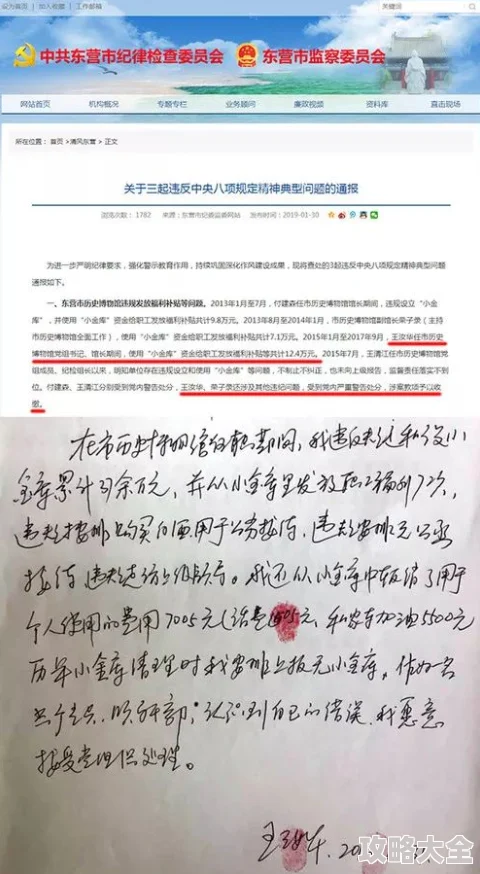 设为首页 | 加入收藏 | 工作邮箱
关键词
中共东营市纪律检查委员会 东营市监察委员会
网站首页 机构概况 专题专栏 业务顾问 廉政视频 资料库 直击现场
所在位置: 首页 >清风东营 > 正文
关于三起违反中央八项规定精神典型问题的通报
浏览次数: 1782 来源: 东营市纪委监委网站 发布时间: 2019-01-30
为进一步严明纪律要求，强化警示教育作用，持续巩固深化作风建设成果，现将查处的3起违反中央八项规定精神典型问题
通报如下。
一、东营市历史博物馆违规发放福利补贴等问题。2013年1月至7月，付建森任市历史博物馆馆长期间，违规设立“小金
库”，并使用“小金库”资金给职工发放福利补贴共计9.8万元。2013年8月至2014年1月，市历史博物馆副馆长荣子录（主持
市历史博物馆全面工作），使用“小金库”资金给职工发放福利补贴共计7.1万元。2015年1月至2017年9月，王汝华任市历史
博物馆党组书记、馆长期间，使用“小金库”资金给职工发放福利补贴等共计12.4万元。2015年7月，王清江任市历史博物馆党
组成员、纪检组长以来，明知单位存在违规设立和使用“小金库”等问题，不制止不纠正，也未向上级报告，监督责任落实不到
位。付建森、王清江分别受到党内警告处分，王汝华、荣子录还涉及其他违纪问题，受到党内严重警告处分，涉案款项予以收
缴。
在市历史博物馆任职期间，我违反规定私设小
金库累计31余万元，并从小金库里发放职工福利72次，
违规安排购买白酒用于公务接待，违规安排无公函
接待 违规
我还从小金库中报销了用
于个人使用的费用7005元（话费1505元、私家车加油5500元
历年小金库清理时我安排上报无小金库。作为一名
党员、领导干部，认识到自己的错误，我愿意
接受党组织处理。
王汝华 20
攻略大全